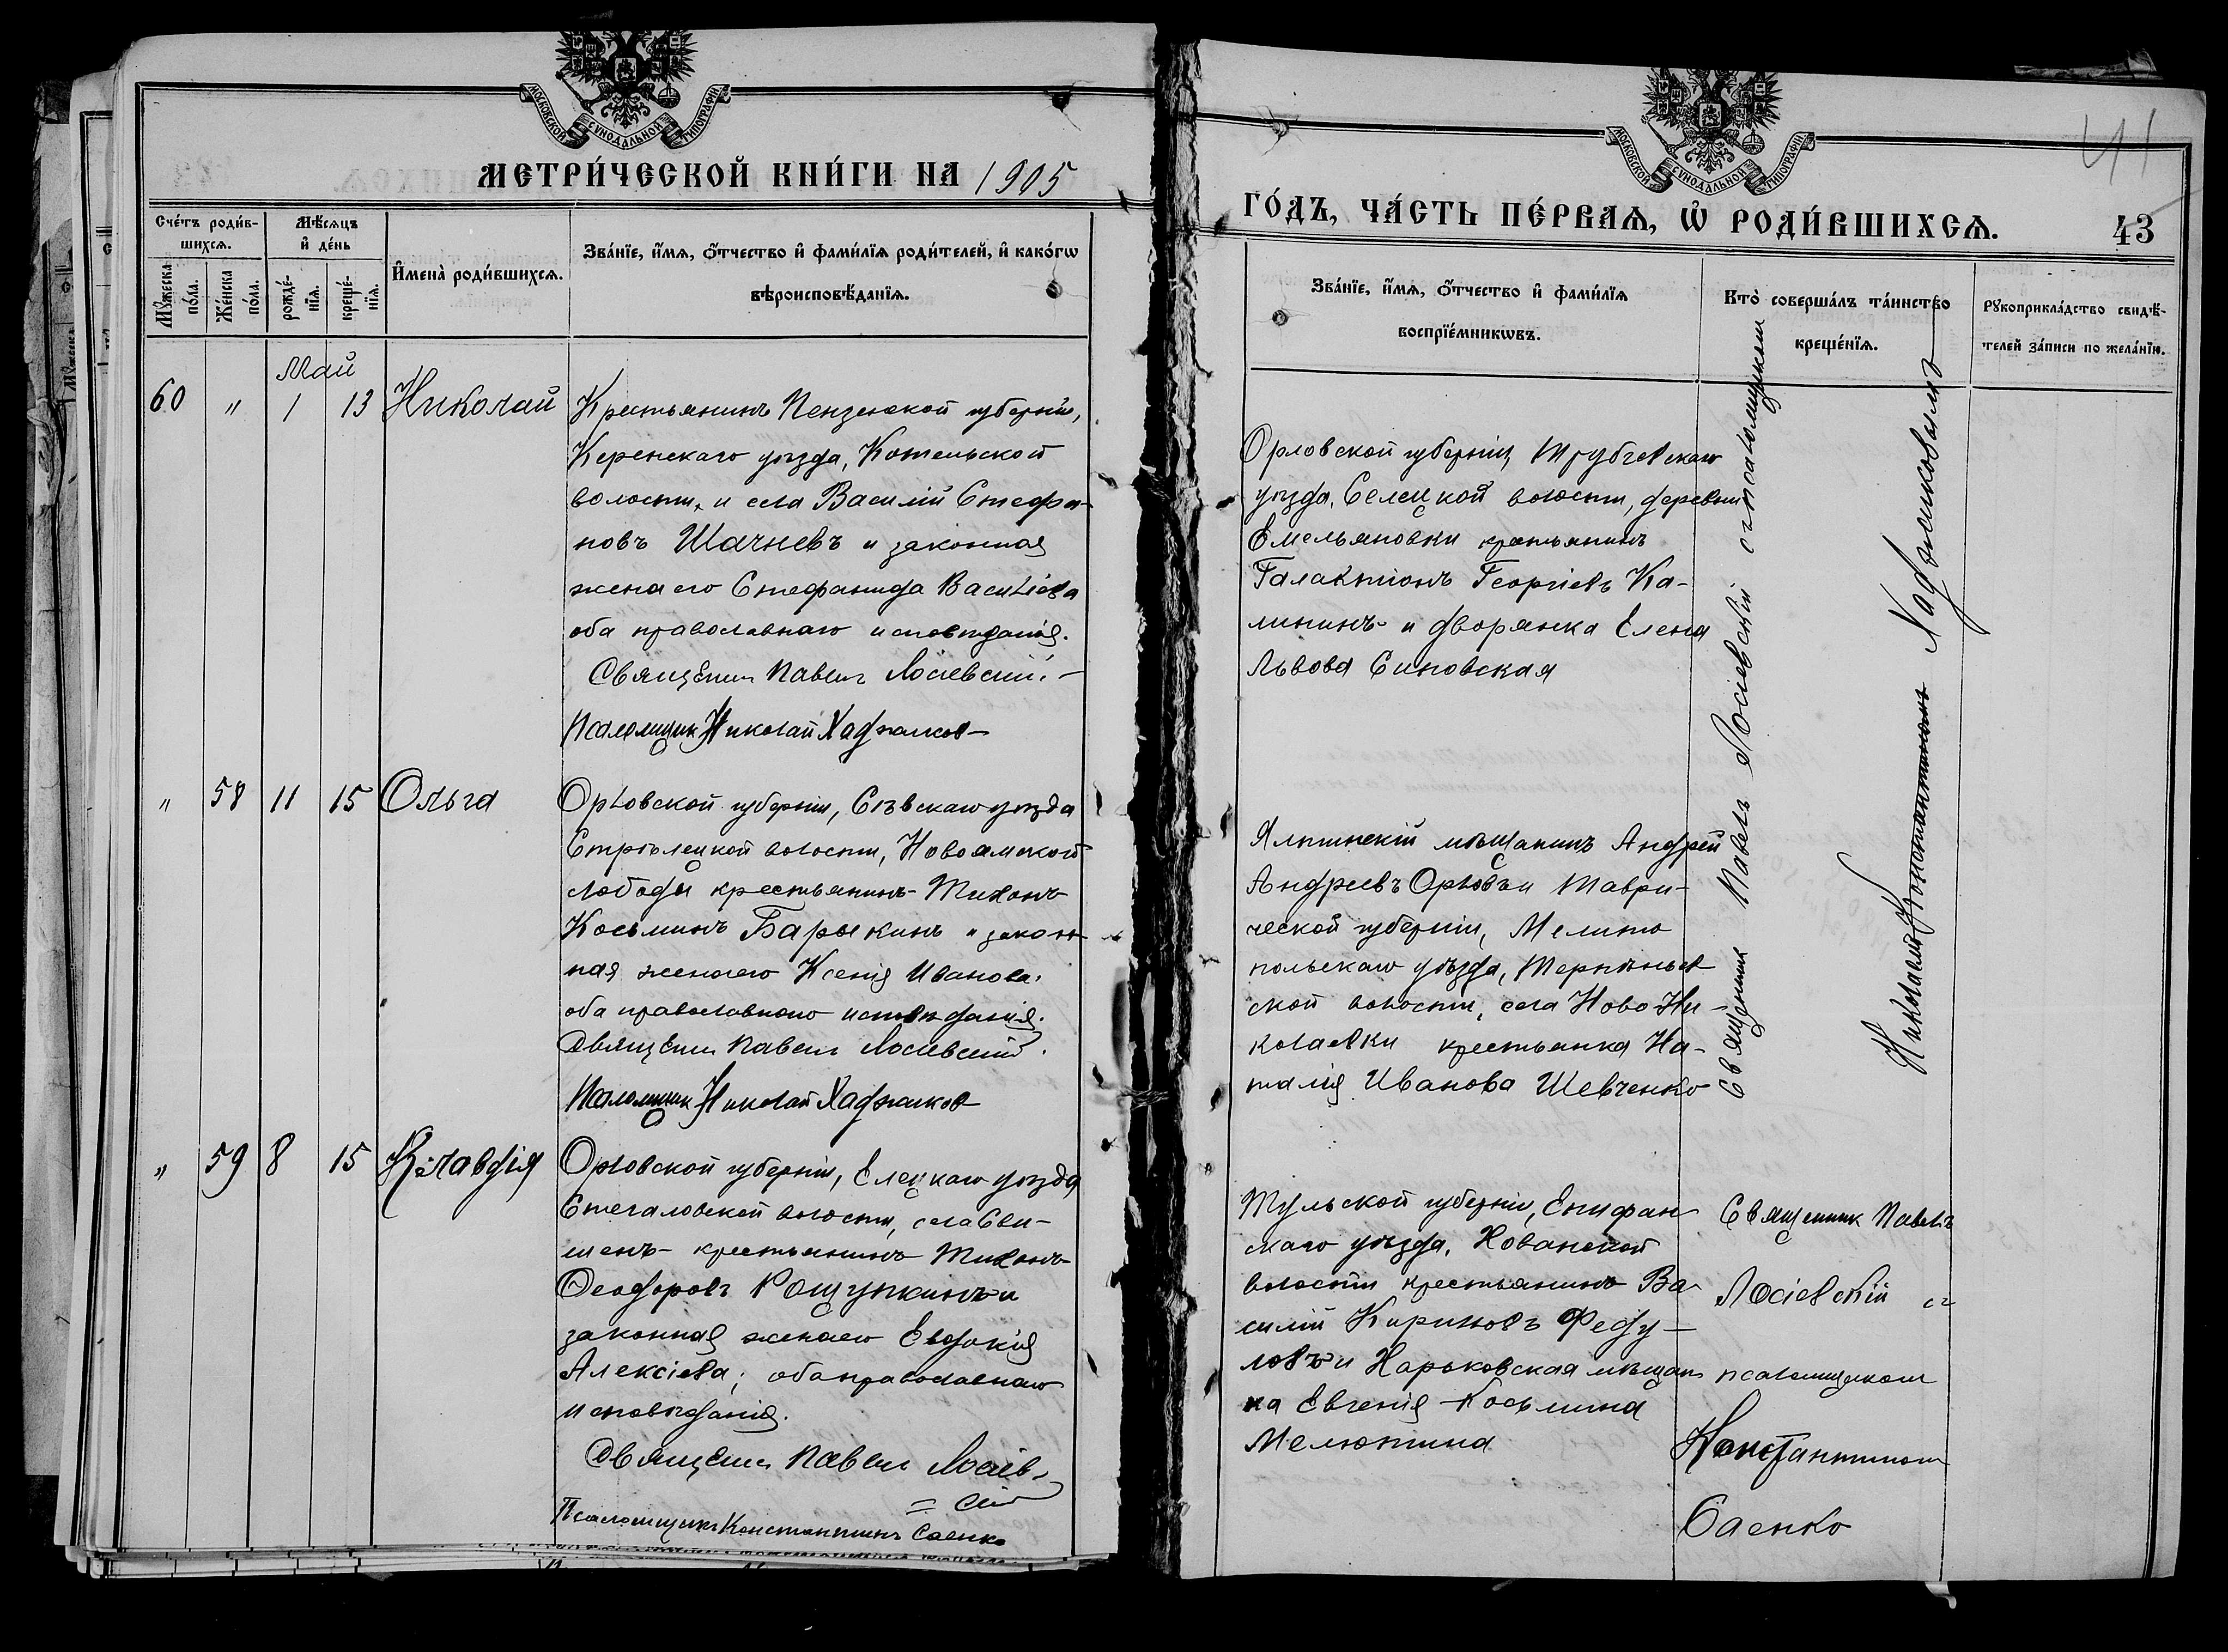 МОСКОВСКОЙ СУНОДАЛЬНОЙ ТИПОГРАФІИ
МЕТРИ́ЧЕСКОЙ КНИ́ГИ НА 1905
Сче́тъ роди́в-
шихся.
Мѣ́сяцъ
и҆ де́нь
Мꙋ́жеска
по́ла.
Же́нска
по́ла.
рожде́-
нїѧ.
креще́-
нїѧ.
И҆мена̀ роди́вшихсѧ.
Зва́нїе, и҆́мѧ, ѻ҆́тчество и҆ фами́лїѧ роди́телей, и҆ како́гѡ
вѣроисповѣ́данїѧ.
Май
60 " 1 13 Николай
Крестьянинъ Пензенской губерніи,
Керенскаго уѣзда, Котельской
волости, и села Василій Стефа-
новъ Шачневъ и законная
жена его Стефанида Василіева
оба православнаго исповѣданія.
Священникъ Павелъ Лосіевскій
Псаломщик Николай Хаджиков
" 58 11 15 Ольга
Орловской губерніи, Сѣвскаго уѣзда
Стрѣлецкой волости, Новоямской
слободы крестьянинъ Тихонъ
Косьминъ Барыкинъ и закон-
ная жена его Ксенія Иванова.
оба православнаго исповѣданія.
Священникъ Павелъ Лосіевскій.
Псаломщик Николай Хаджиков
" 59 8 15 Клавдія
Орловской губерніи, Елецкаго уѣзда
Стегаловской волости, села Сви-
шень крестьянинъ Тихонъ
Ѳеодоровъ Рощупкинъ и
законная жена его Евдокія
Алексіева; оба православнаго
исповѣданія.
Священникъ Павелъ Лосіев-
=скій
Псаломщикъ Константинъ Саенко
МОСКОВСКОЙ СУНОДАЛЬНОЙ ТИПОГРАФІИ
41
ГО́ДЪ, ЧА́СТЬ ПЕ́РВАѦ, Ѽ РОДИ́ВШИХСѦ.
43
Зва́нїе, и҆́мѧ, ѻ҆́тчество и҆ фами́лїѧ
воспрїе́мникѡвъ.
Кто̀ соверша́лъ та́инство
креще́нїѧ.
Рꙋкоприкла́дство свидѣ́-
телей за́писи по жела́нїю.
Орловской губерніи Трубчевскаго
уѣзда, Селецкой волости, деревни
Емельяновки крестьянинъ
Галактіонъ Георгіевъ Ка-
лининъ и дворянка Елена
Львова Синовская
Священникъ Павелъ Лосіевскій съ псаломщикомъ
Николаемъ Константиномъ Хаджиковымъ
Ялтинскій мѣщанинъ Андрей
Андреевъ Орловъ и Таври-
ческой губерніи, Мелито
польскаго уѣзда, Терпѣньев
ской волости, села Ново Ни-
колаевки крестьянка На-
талія Иванова Шевченко
Тульской губерніи, Епифан-
скаго уѣзда, Хованской
волости крестьянинъ Ва-
силій Кириловъ Феду-
ловъ и Харьковская мѣщан
ка Евгенія Косьмина
Мелютина
Священникъ Павелъ
Лосіевскій съ
псаломщикомъ
Константиномъ
Саенко